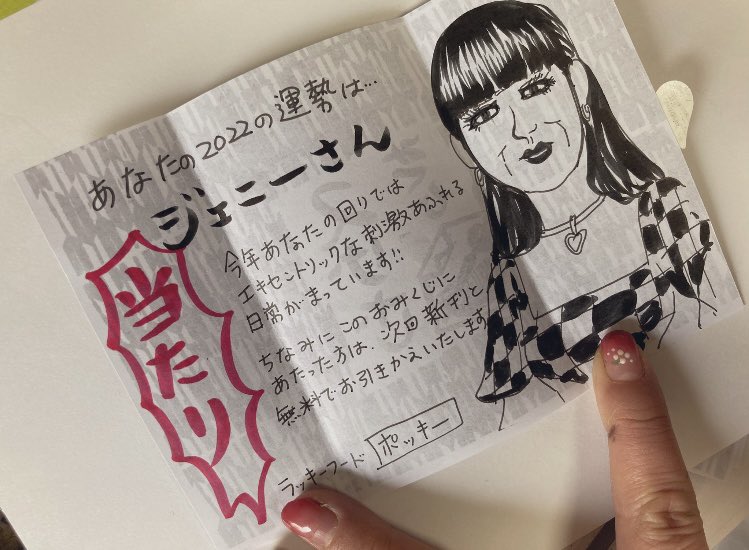 あなたの2022の運勢は…
ジェニーさん
当たり
今年あなたの回りでは
エキセントリックな刺激あふれる
日常がまっています!!
ちなみにこのおみくじに
あたった方は、次回新刊と
無料でお引きかえいたします
ラッキーフード ポッキー